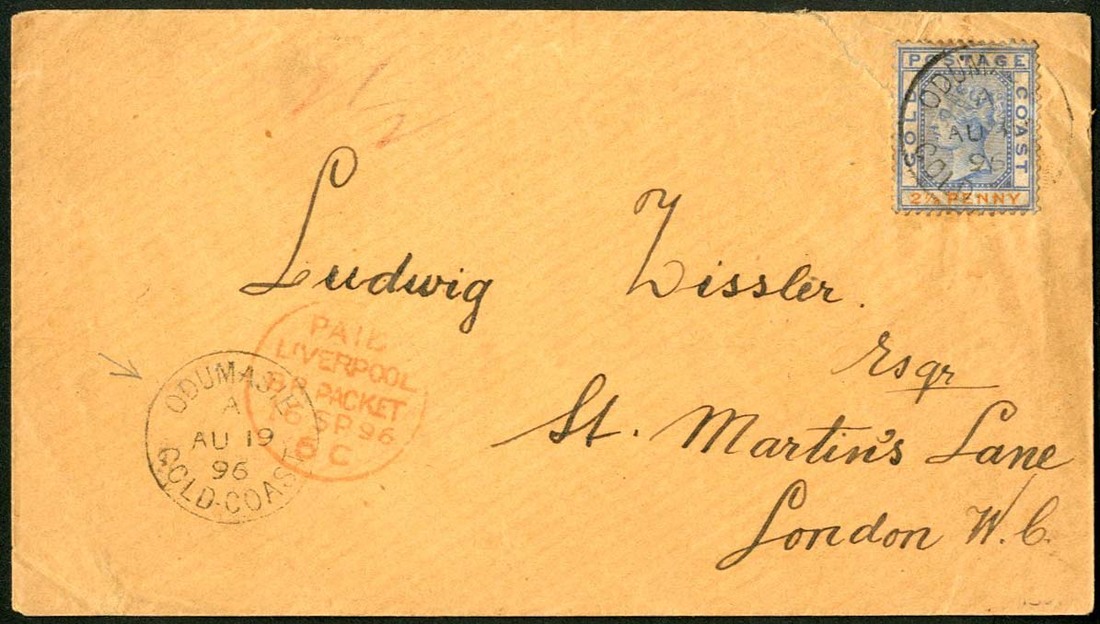 POSTAGE
GOLD COAST
2½ PENNY
AU
96
Ludwig Zissler.
Esqr
St. Martin's Lane
London W.C.
PAID
LIVERPOOL
BR. PACKET
16 SP 96
5 C
ODUMASIE
A
AU 19
96
GOLD-COAST